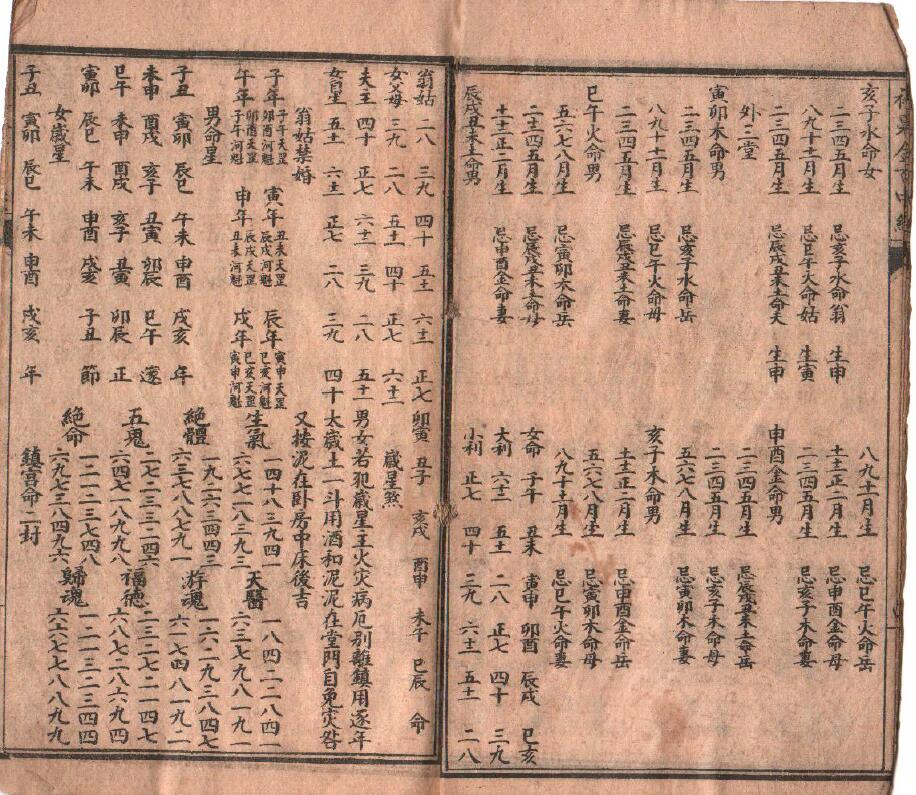 亥子水命女
二三四五月生 忌亥子水命翁 生申
八九十十二月生 忌巳午火命姑 生寅
二三四五月生 忌辰戌丑未土命夫 生申
外三堂
寅卯木命男
二三四五月生 忌亥子水命岳
八九十十二月生 忌巳午火命母
二三四五月生 忌辰戌丑未土命妻
巳午火命男
五六七八月生 忌寅卯木命岳
二三四五月生 忌辰戌丑未土命母
十十二正二月生 忌申酉金命妻
辰戌丑未土命男
八九十二月生 忌巳午火命岳
十十二正二月生 忌申酉金命母
二三四五月生 忌亥子水命妻
申酉金命男
二三四五月生 忌辰戌丑未土命岳
二三四五月生 忌亥子水命母
五六七八月生 忌寅卯木命妻
亥子水命男
十十二正二月生 忌申酉金命岳
五六七八月生 忌寅卯木命母
八九十十二月生 忌巳午火命妻
女命 子午 丑未 寅申 卯酉 辰戌 巳亥
大利 六十二 五十一 二八 正七 四十 三九
小利 正七 四十 三九 六十二 五十一 二八
翁姑 二八 三九 四十 五十一 六十二 正七
女父母 三九 二八 五十一 四十 正七 六十二
夫主 四十 正七 六十二 三九 二八 五十一
女自生 五十一 六十二 正七 二八 三九 四十
翁姑禁婚
子年 子午天罡 卯酉河魁 寅年 丑未天罡 辰戌河魁 辰年 寅申天罡 巳亥河魁
午年 卯酉天罡 子午河魁 申年 辰戌天罡 丑未河魁 戌年 巳亥天罡 寅申河魁
男命星
子丑 寅卯 辰巳 午未 申酉 戌亥 年
未申 酉戌 亥子 丑寅 卯辰 巳午
巳午 未申 酉戌 亥子 丑寅 卯辰 正
寅卯 辰巳 午未 申酉 戌亥 子丑 節
女歲星
子丑 寅卯 辰巳 午未 申酉 戌亥 年
卯寅 丑子 亥戌 酉申 未午 巳辰 命
歲星煞
男女若犯歲星主火灾病厄别離鎮用逐年
太歲土一斗用酒和泥泥在堂門自免灾咎
又按泥在卧房中床後吉
生氣 一四十八三九四一 六七七一八三九三 天醫 一八四二二八四一 六三七九八一九一
絶體 一九二六三四四三 六三七八八七九一 游魂 一六二九三八四七 六一七四八一九二
五鬼 一二七二三三四六 六四七一八九九八 福德 二三二七二一四七 六八七二八六九四
絶命 一二二一三七四八 六九七三八四九六 歸魂 一一二二三三四四 六六七七八八九九
鎮宫命二封